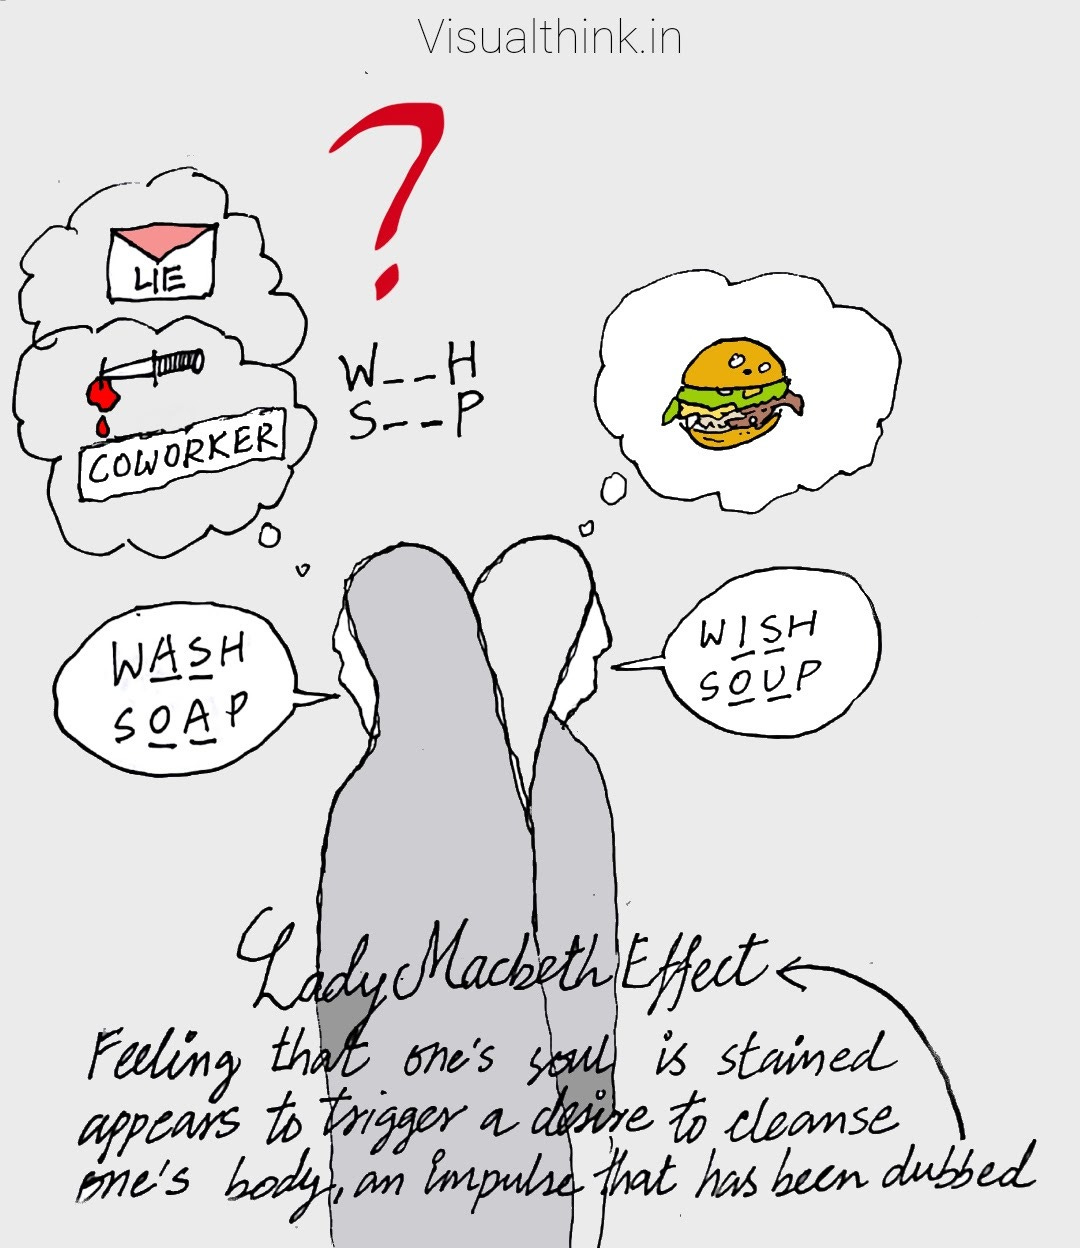 Visualthink.in
?
LIE
COWORKER
W__H
S__P
WASH
SOAP
WISH
SOUP
Lady Macbeth Effect
Feeling that one's soul is stained
appears to trigger a desire to cleanse
one's body, an impulse that has been dubbed